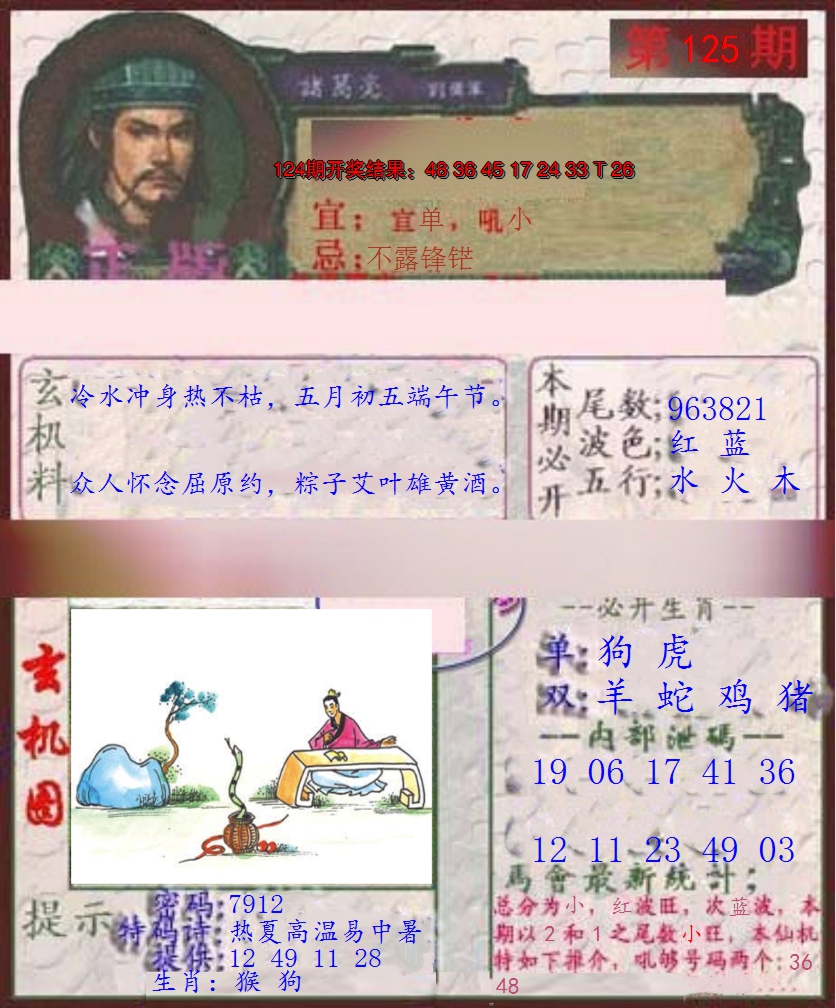 第125期
諸葛亮
124期开奖结果：48 36 45 17 24 33 T 26
宜；宜单，吼小
忌；不露锋铓
正版
玄机料
冷水冲身热不枯，五月初五端午节。
众人怀念屈原约，粽子艾叶雄黄酒。
本期必开
尾数；963821
波色；红 蓝
五行；水 火 木
玄机图
--必开生肖--
单：狗 虎
双：羊 蛇 鸡 猪
——内部泄碼——
19 06 17 41 36
12 11 23 49 03
馬會最新統計；
总分为小，红波旺，次蓝波，本
期以2和1之尾数小旺，本仙机
特如下推介，吼够号码两个：36
48
提示
密码：7912
特码诗：热夏高温易中暑
提供：12 49 11 28
生肖：猴 狗